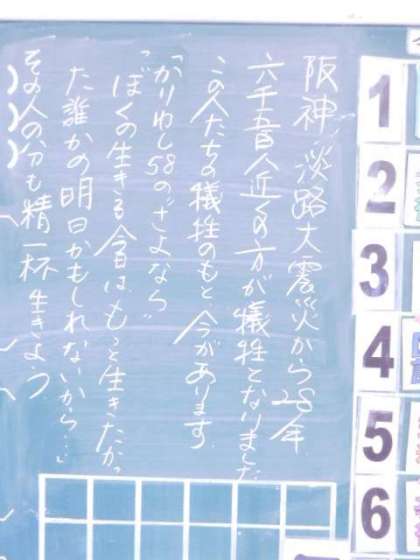 阪神・淡路大震災から28年
六千五百人近くの方が犠牲となりました
この人たちの犠牲のもと、今があります。
"かりゆし58の"さよなら"
"ぼくの生きる今日は、もっと生きたかっ
た誰かの明日かもしれないから…"
その人の分も精一杯生きよう
1
2
3
4
5
6